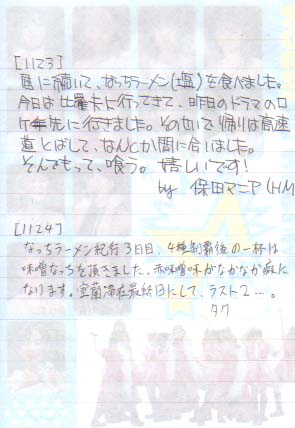 [1123]
昼に続いて、なっちラーメン(塩)を食べました。
今日は 仕羅卡に行ってきて、昨日のドラマのロ
ケ先に行きました。その勢いで帰りは高速
道とばして、なんとか間に合いました。
そんでもって、喰う。嬉しいです!
by 保田マニア(HM
[1124]
なっちラーメン紀行3日目、4種制覇後の一杯は
味噌なっちを頂きました。赤味噌味がなかなか癖に
なります。室蘭滞在最終日にして、ラスト2…。
タク